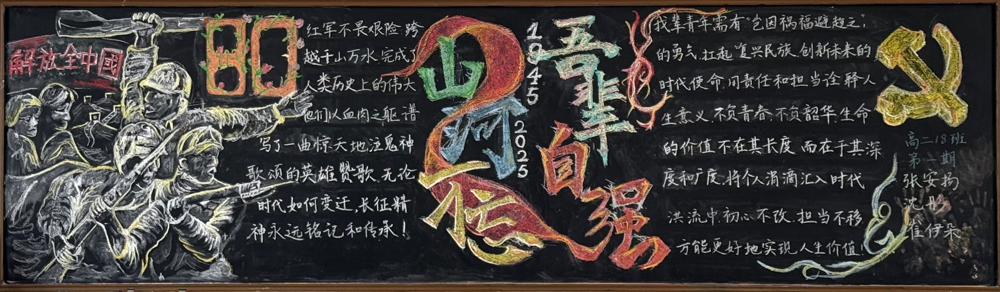 解放全中國
80
红军不畏艰险 跨
越千山万水 完成了
人类历史上的伟大
他们以血肉之躯 谱
写了一曲惊天地泣鬼神
歌颂的英雄赞歌 无论
时代如何变迁,长征精
神永远铭记和传承!
山河无恙
1945
2025
吾辈自强
我辈青年需有"岂因祸福避趋之"
的勇气 扛起复兴民族 创新未来的
时代使命,用责任和担当诠释人
生意义 不负青春 不负韶华 生命
的价值不在其长度 而在于其深
度和广度,将个人涓滴汇入时代
洪流中初心不改 担当不移
方能更好地实现人生价值!
高二18班
第一期
张安扬
沈彤
崔伊朵